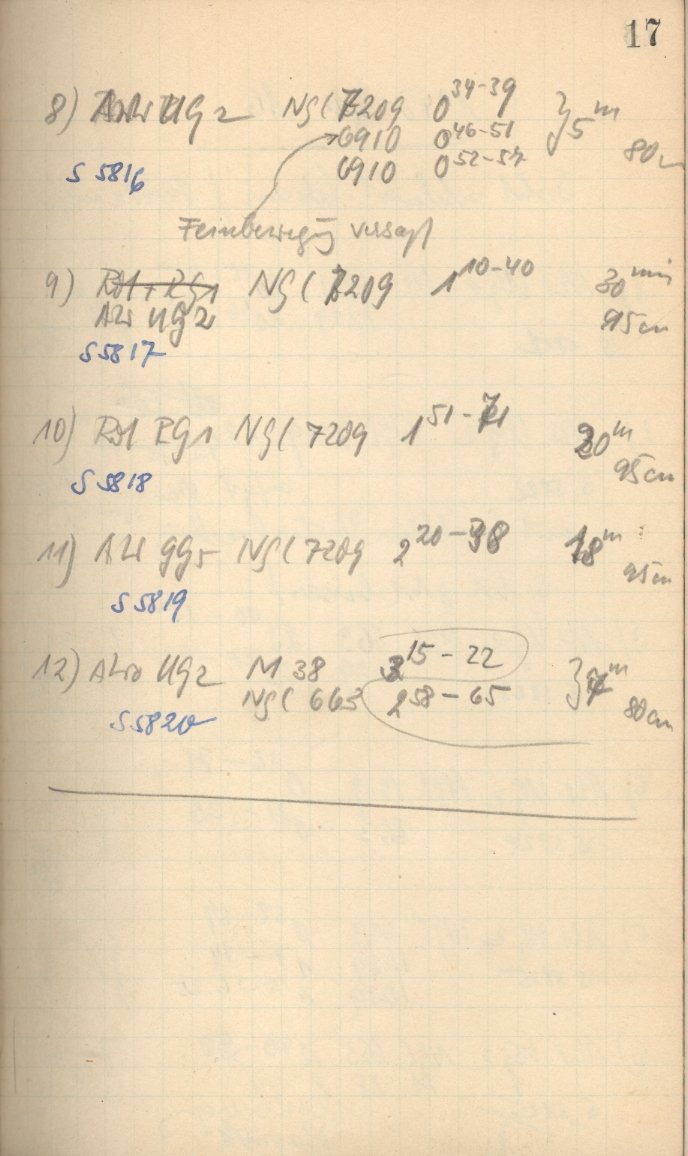 17
8) UG2 NGC 7209 0 34-39 } 5 m
6910 0 46-51 80
S 5816 6910 0 52-57
Feinbewegung versagt
9) Rot + RG1 NGC 7209 1 10-40 30 min
UG2 95 cm
S 5817
10) Rot RG1 NGC 7209 1 51-71 20 m
S 5818 95 cm
11) GG5 NGC 7209 2 20-38 18 m
S 5819 95 cm
12) UG2 M 38 3 15-22 } 7 m
NGC 663 2 58-65 80 cm
S 5820